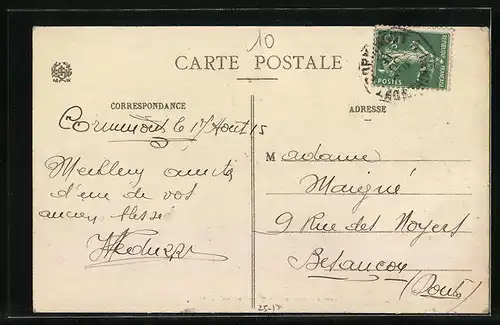 10
CARTE POSTALE
CORRESPONDANCE
ADRESSE
le 17 Août 15
Meilleurs amitiés
d'un de vos
anciens blessé
Madame
Maigné
9 Rue des Noyers
Besançon
(Doubs)
REPUBLIQUE FRANÇAISE
POSTES
25-17